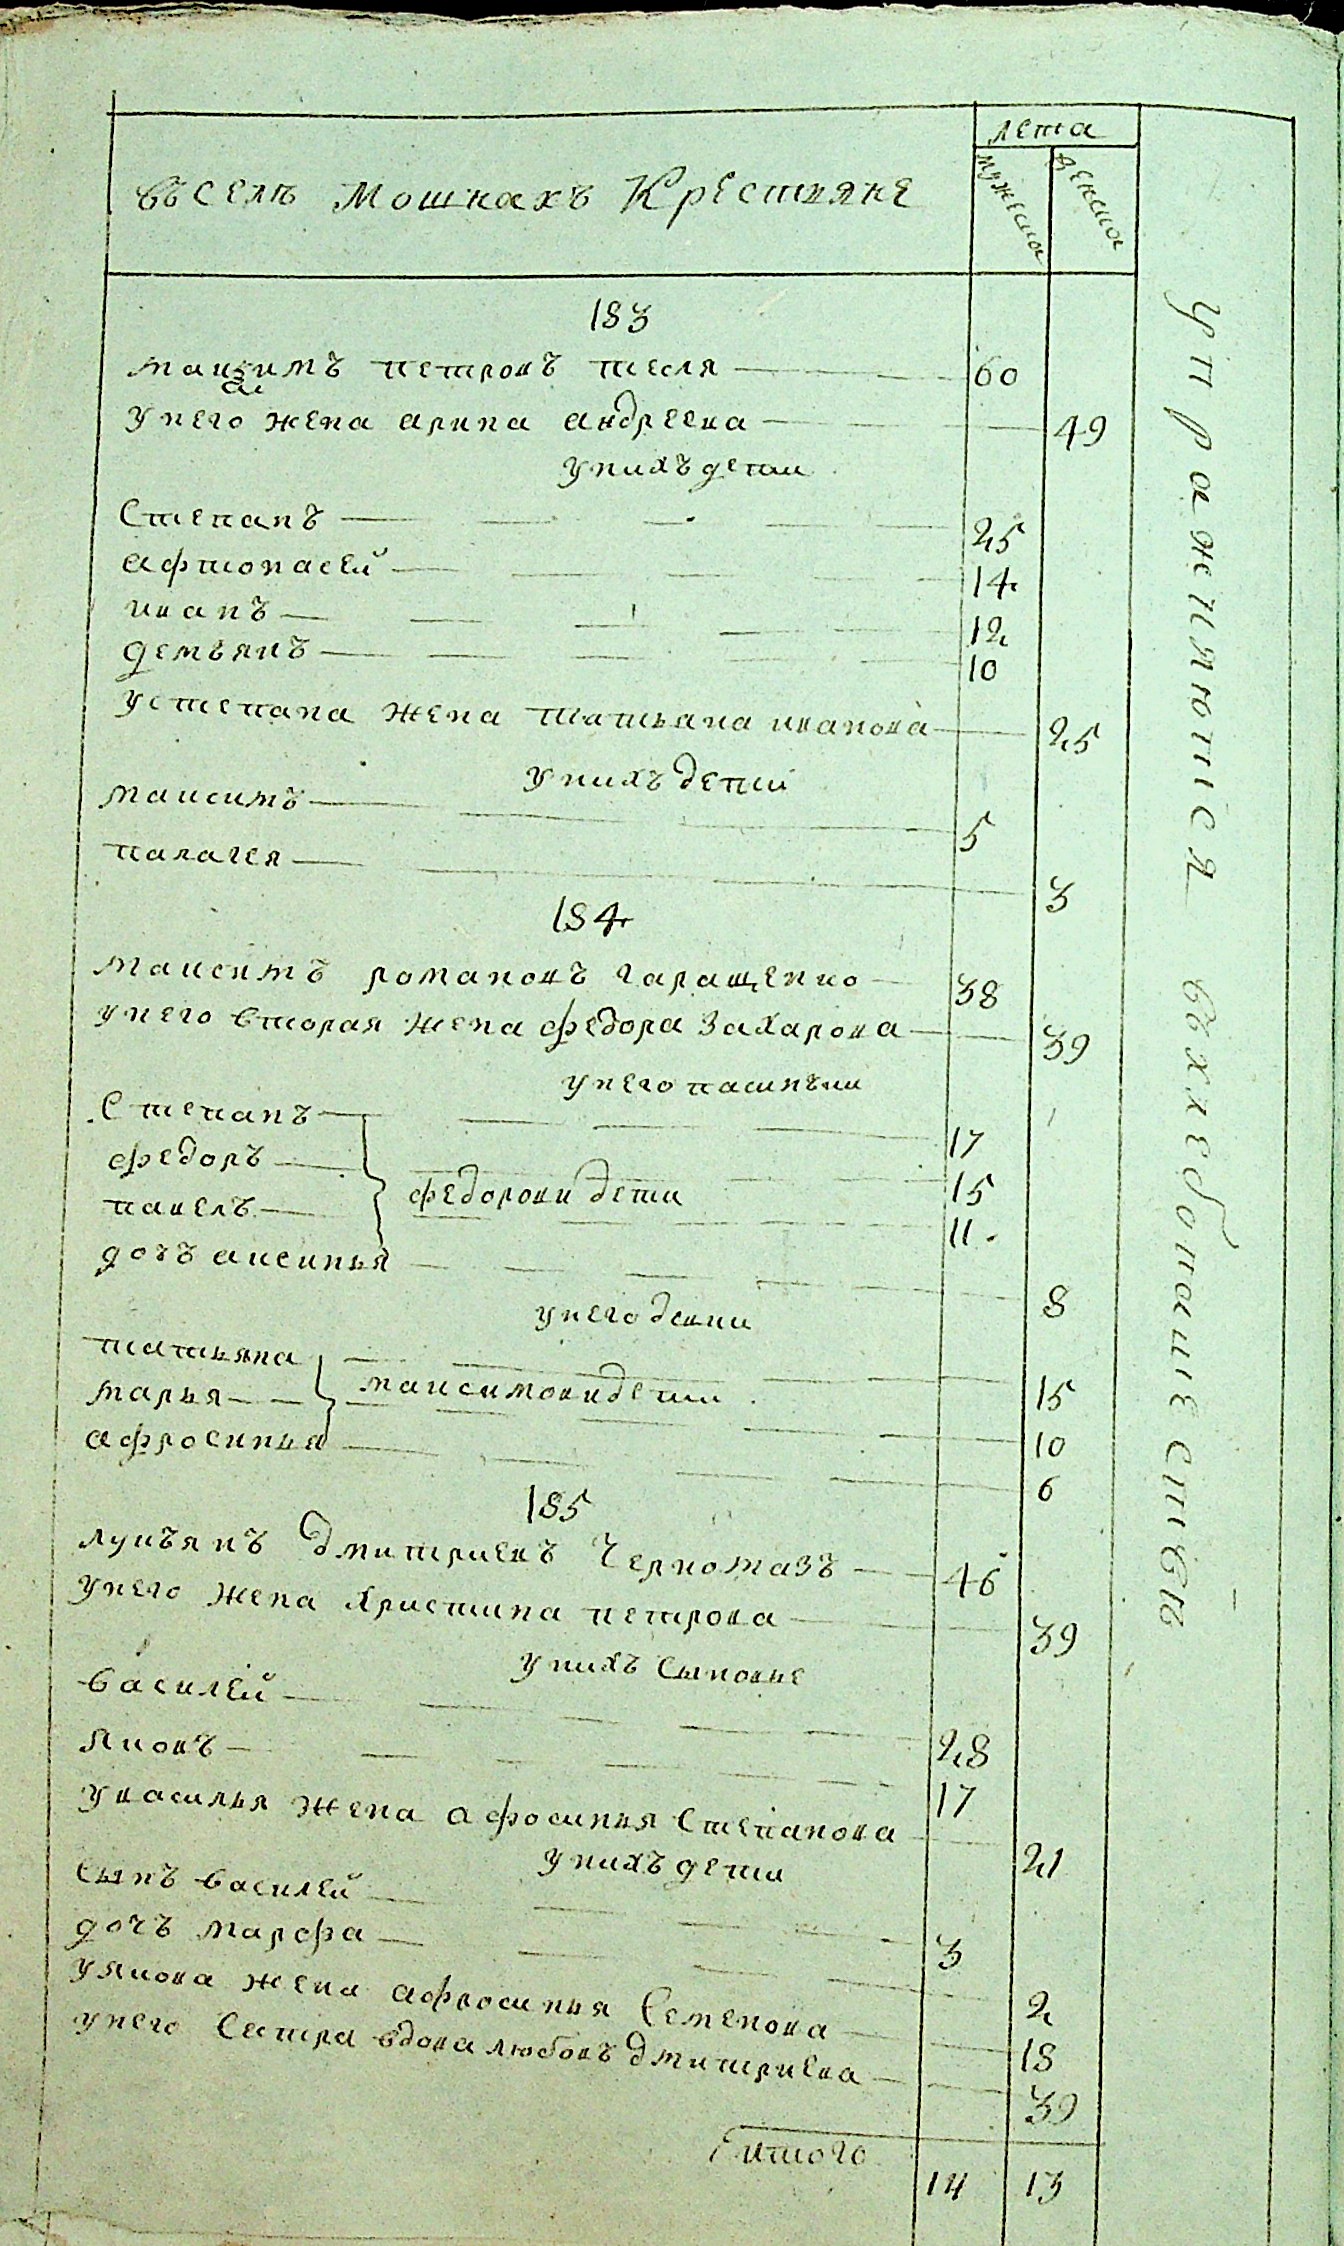 лета
мужеска
женска
въ селѣ Мошнахъ Крестьяне
183
максимъ петровъ тесля 60
у него жена арина андреева 49
у нихъ дети
Степанъ 25
афтонасей 14
иванъ 12
демьянъ 10
у степана жена татьяна иванова 25
у нихъ дети
максимъ 5
палагея 3
184
максимъ романовъ гаращенко 38
у него вторая жена федора захарова 39
у него пасинъки
Степанъ 17
федоръ 15
федорови дети
павелъ 11
дочъ аксинья 8
у него девки
татьяна 15
марья 10
максимови дети
афросинья 6
185
лукъянъ дмитриевъ Черномазъ 46
у него жена христина петрова 39
у нихъ сыновье
василей 28
яковъ 17
у василья жена афосинья Степанова 21
у нихъ дети
сынъ василей 3
дочъ марфа 2
у якова жена афросинья Семенова 18
у него Сестра вдова любовъ дмитриева 39
итого 14 13
упражняются въ хлебопашествѣ